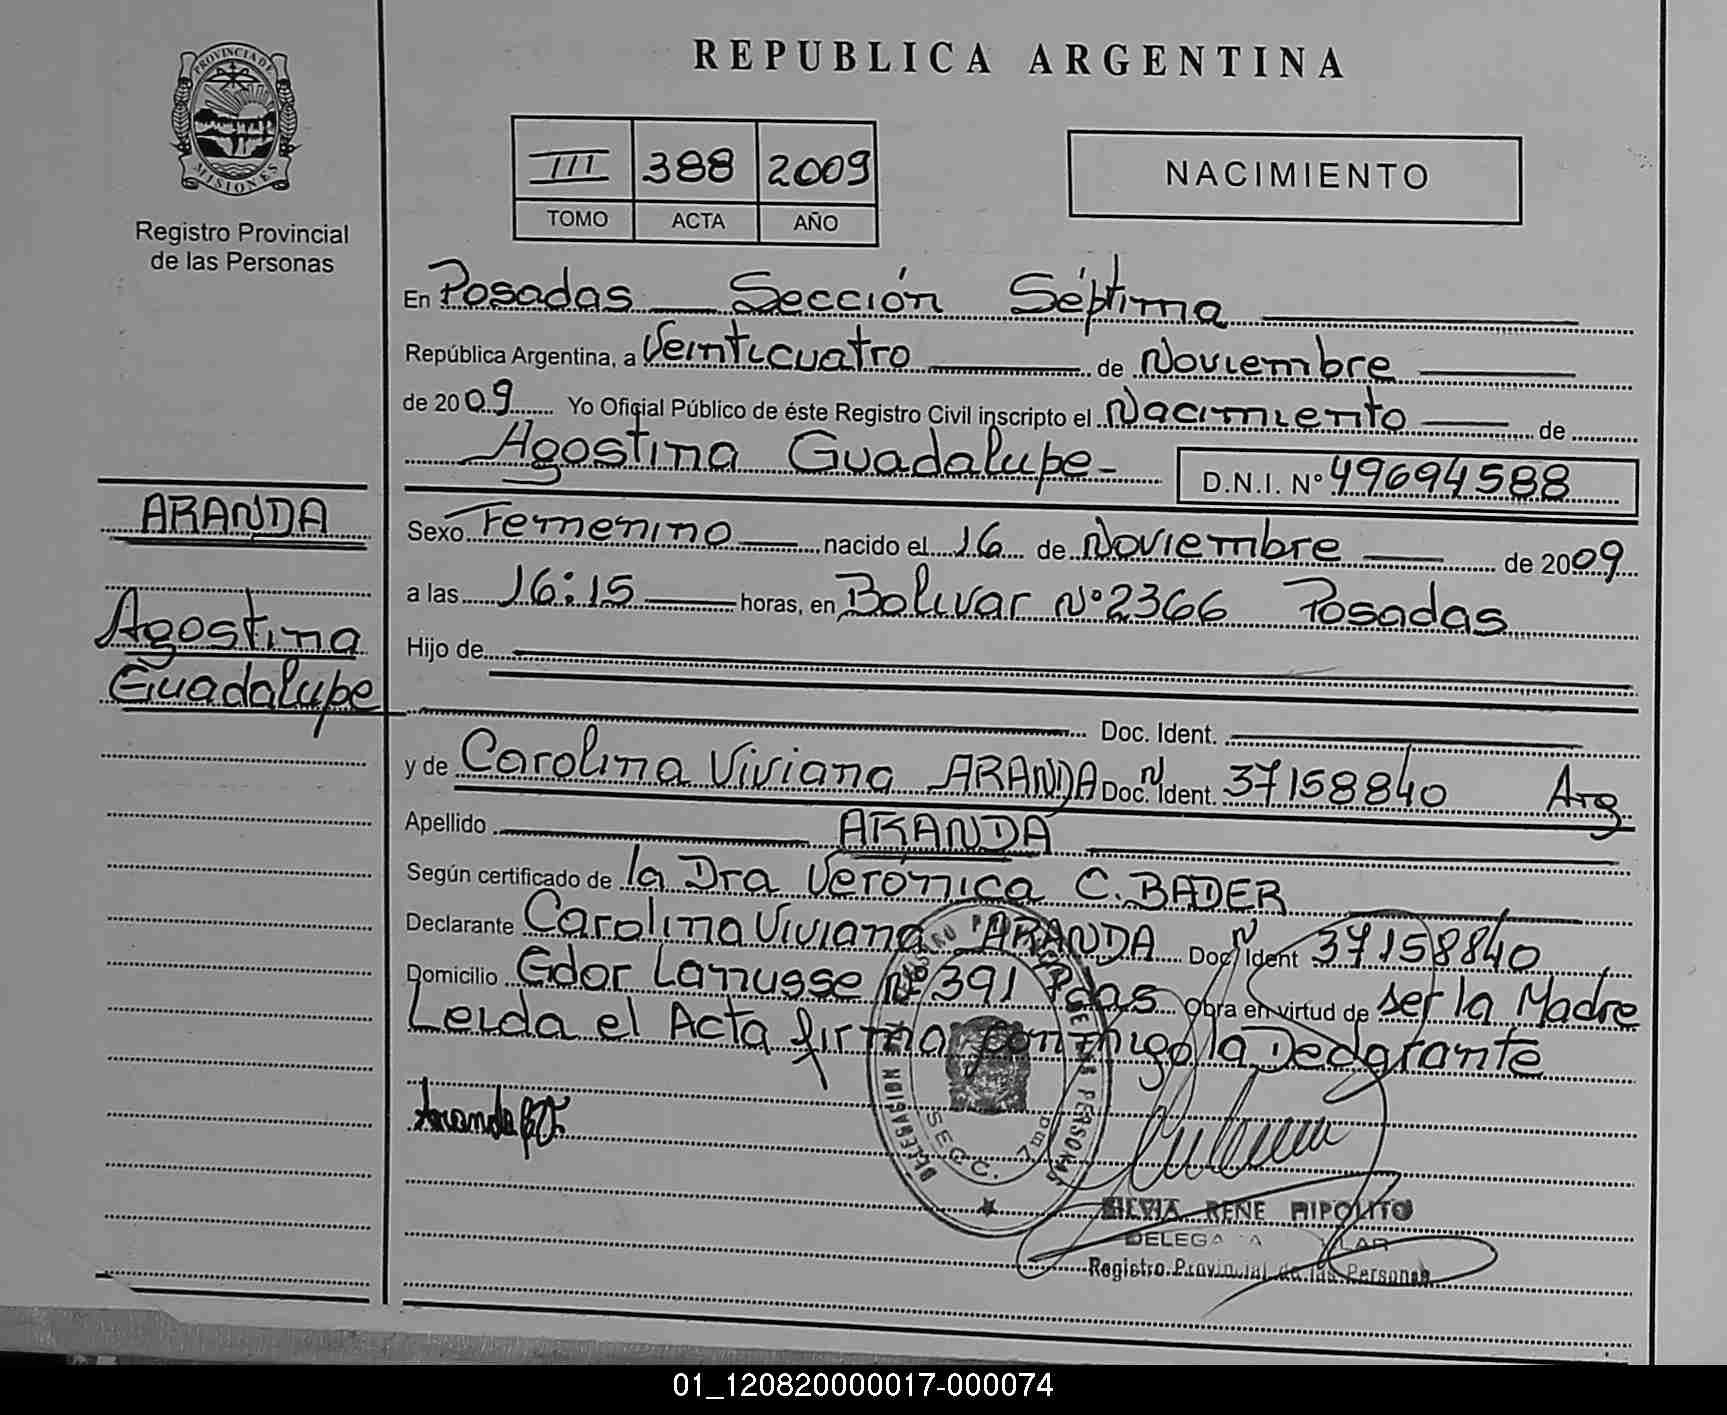 REPUBLICA ARGENTINA
PROVINCIA DE MISIONES
Registro Provincial
de las Personas
III 388 2009
TOMO ACTA AÑO
NACIMIENTO
En Posadas Sección Séptima
República Argentina, a Veinticuatro de Noviembre
de 2009 Yo Oficial Público de éste Registro Civil inscripto el Nacimiento de
Agostina Guadalupe D.N.I. Nº 49694588
ARANDA
Agostina
Guadalupe
Sexo Femenino nacido el 16 de Noviembre de 2009
a las 16:15 horas, en Bolivar Nº 2366 Posadas
Hijo de
Doc. Ident.
y de Carolina Viviana ARANDA Doc. N Ident. 37158840 Arg
Apellido ARANDA
Según certificado de la Dra Verónica C. BADER
Declarante Carolina Viviana ARANDA Doc. N Ident 37158840
Domicilio Gdor Lanusse Nº 391 Pdas Obra en virtud de ser la Madre
Leida el Acta firma conmigo la Declarante
Aranda
DELEGACION REGISTRO DE LAS PERSONAS
SECC. 7ma
SILVIA RENE HIPOLITO
Registro Provincial de las Personas
01_120820000017-000074